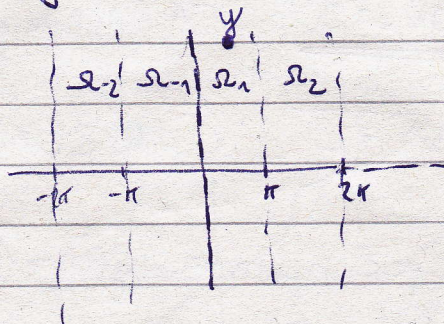 y
Ω-2 Ω-1 Ω1 Ω2
-2π -π π 2π